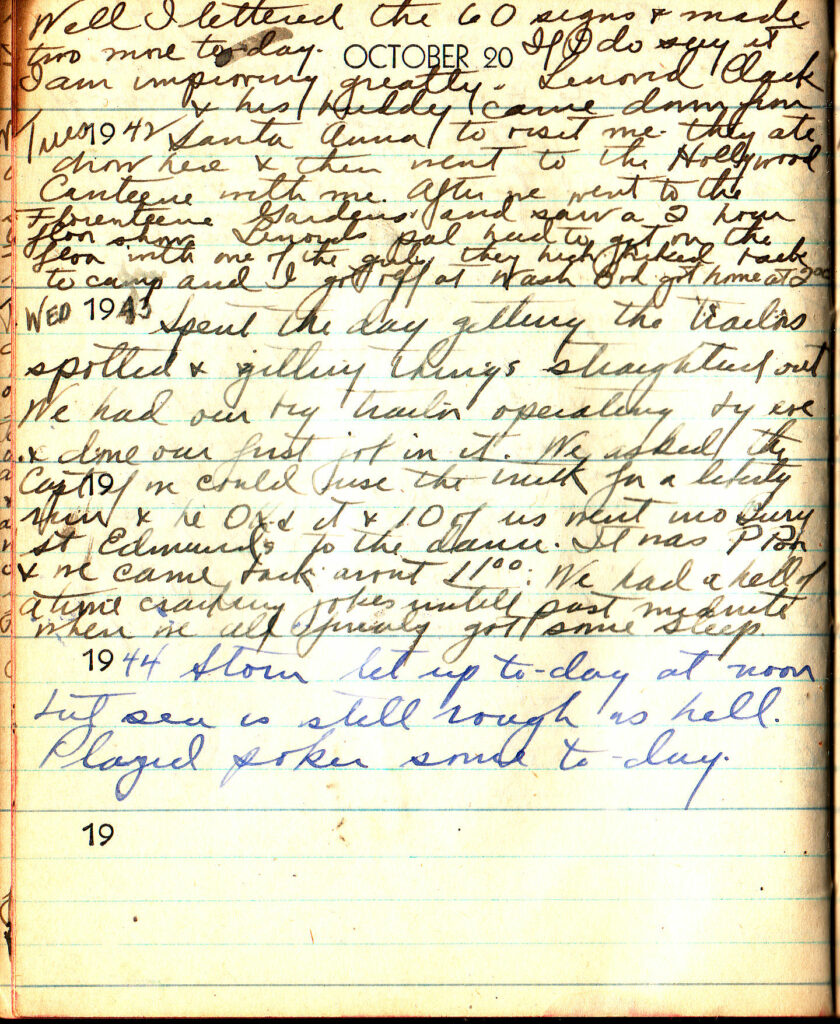 Well I lettered the 60 signs & made
two more to-day. OCTOBER 20 If I do say it
I am improving greatly. Lenord Clack
& his buddy came down from
Tues 1942 Santa Anna to visit me. they ate
chow here & then went to the Hollywood
Canteene with me. After we went to the
Florenteene Gardens and saw a 2 hour
floor show Lenords pal had to get on the
floor with one of the gals. they high hiked back
to camp and I got off at Wash Bvd got home at 200
WED 1943 Spent the day getting the trailors
spotted & getting things straightend out
We had our big trailor operating by eve
& done our first job in it. We asked the
Capt if we could use the truck for a liberty
19
run & he OKd it & 10 of us went into Bury
St Edmunds to the dance. It was P Poor
& we came back about 1100. We had a hell of
a time cracking jokes untill past midnite
when we all finialy got some sleep.
1944 Storm let up to-day at noon
but sea is still rough as hell.
Played poker some to-day.
19